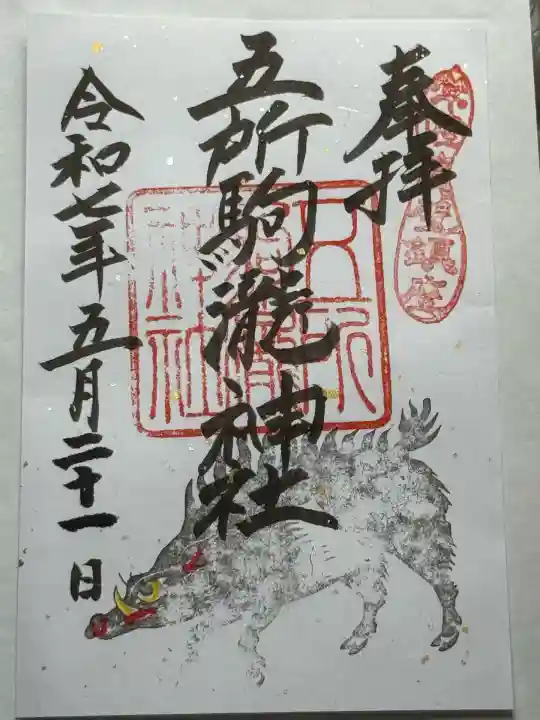 奉拝
五所駒瀧神社
令和七年五月二十一日
五所駒瀧神社